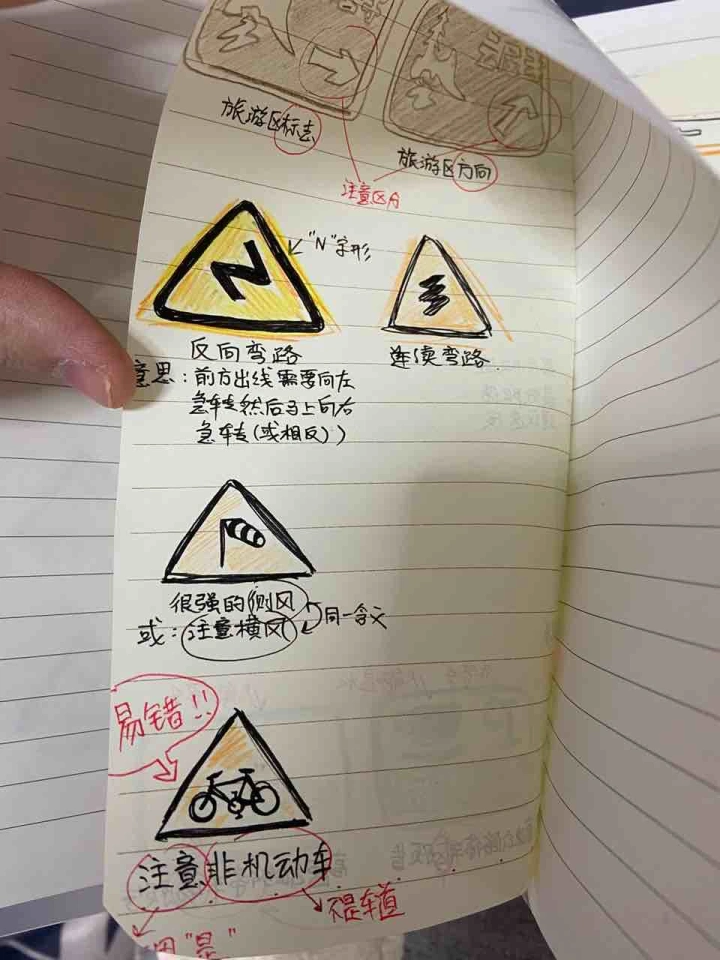 旅游区标志
旅游区方向
注意区分
"N"字形
反向弯路
连续弯路
意思:前方出线需要向左
急转然后马上向右
急转(或相反))
很强的侧风
或:注意横风
同一含义
易错!!
注意非机动车
不是车道
"是"